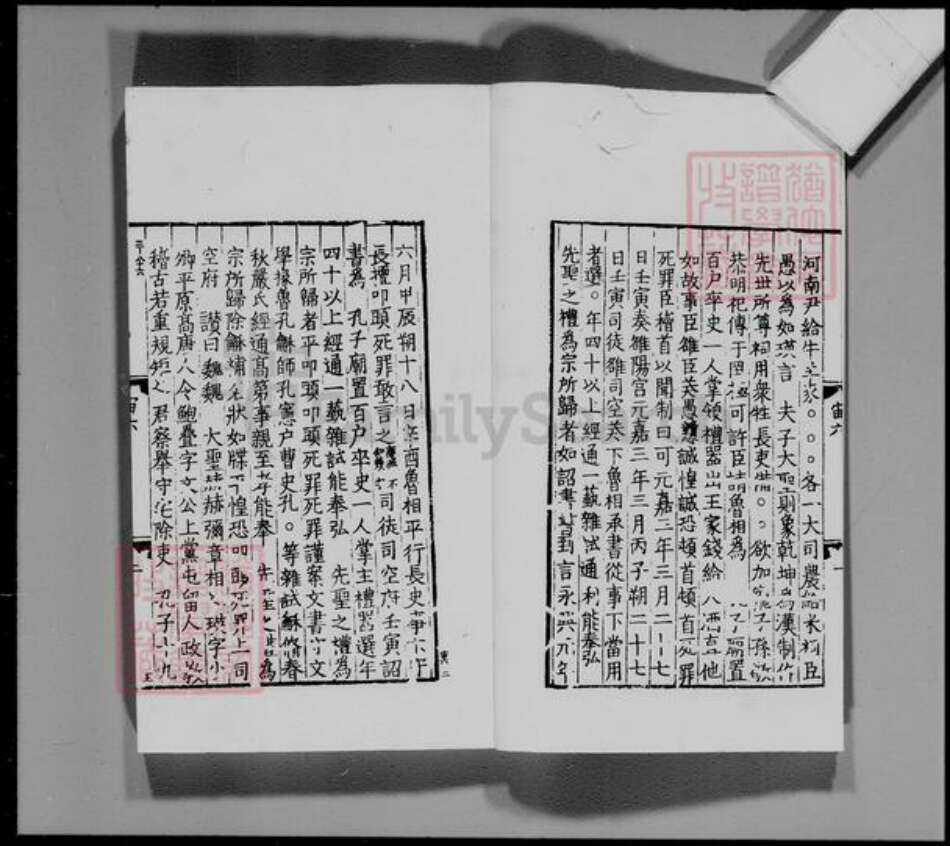 河南尹給牛羊豕。。。各一大司農給米祠臣
愚以為如瑛言　夫子大聖則象乾坤為漢制作
先世所尊祠用衆牲長吏備。。欲加寵子孫敬
恭明祀傳于罔極可許臣請魯相為　孔子廟置
百戶卒史一人掌領禮器出王家錢給犬酒直他
如故事臣雄臣戒愚戇誠惶誠恐頓首頓首死罪
死罪臣稽首以聞制曰可元嘉三年三月二十七
日壬寅奏雒陽宮元嘉三年三月丙子朔二十七
日壬寅司徒雄司空戒下魯相承書從事下當用
者選。年四十以上經通一藝雜試通利能奉弘
先聖之禮為宗所歸者如詔書書到言永興元年
六月甲辰朔十八日辛酉魯相平行長史事卞守
長擅叩頭死罪敢言之司徒司空府壬寅詔
書為　孔子廟置百戶卒史一人掌主禮器選年
四十以上經通一藝雜試能奉弘　先聖之禮為
宗所歸者平叩頭叩頭死罪死罪謹案文書守文
學掾魯孔龢師孔憲戶曹史孔。等雜試龢修春
秋嚴氏經通高第事親至孝能奉　先聖之禮為
宗所歸除龢補名狀如牒平惶恐叩頭死罪上司
空府　讚曰巍巍　大聖赫赫彌章相乙瑛字少
卿平原高唐人令鮑疊字文公上黨屯留人政教
稽古若重規矩乙君察舉守宅除吏　孔子十九
寅六
寅二